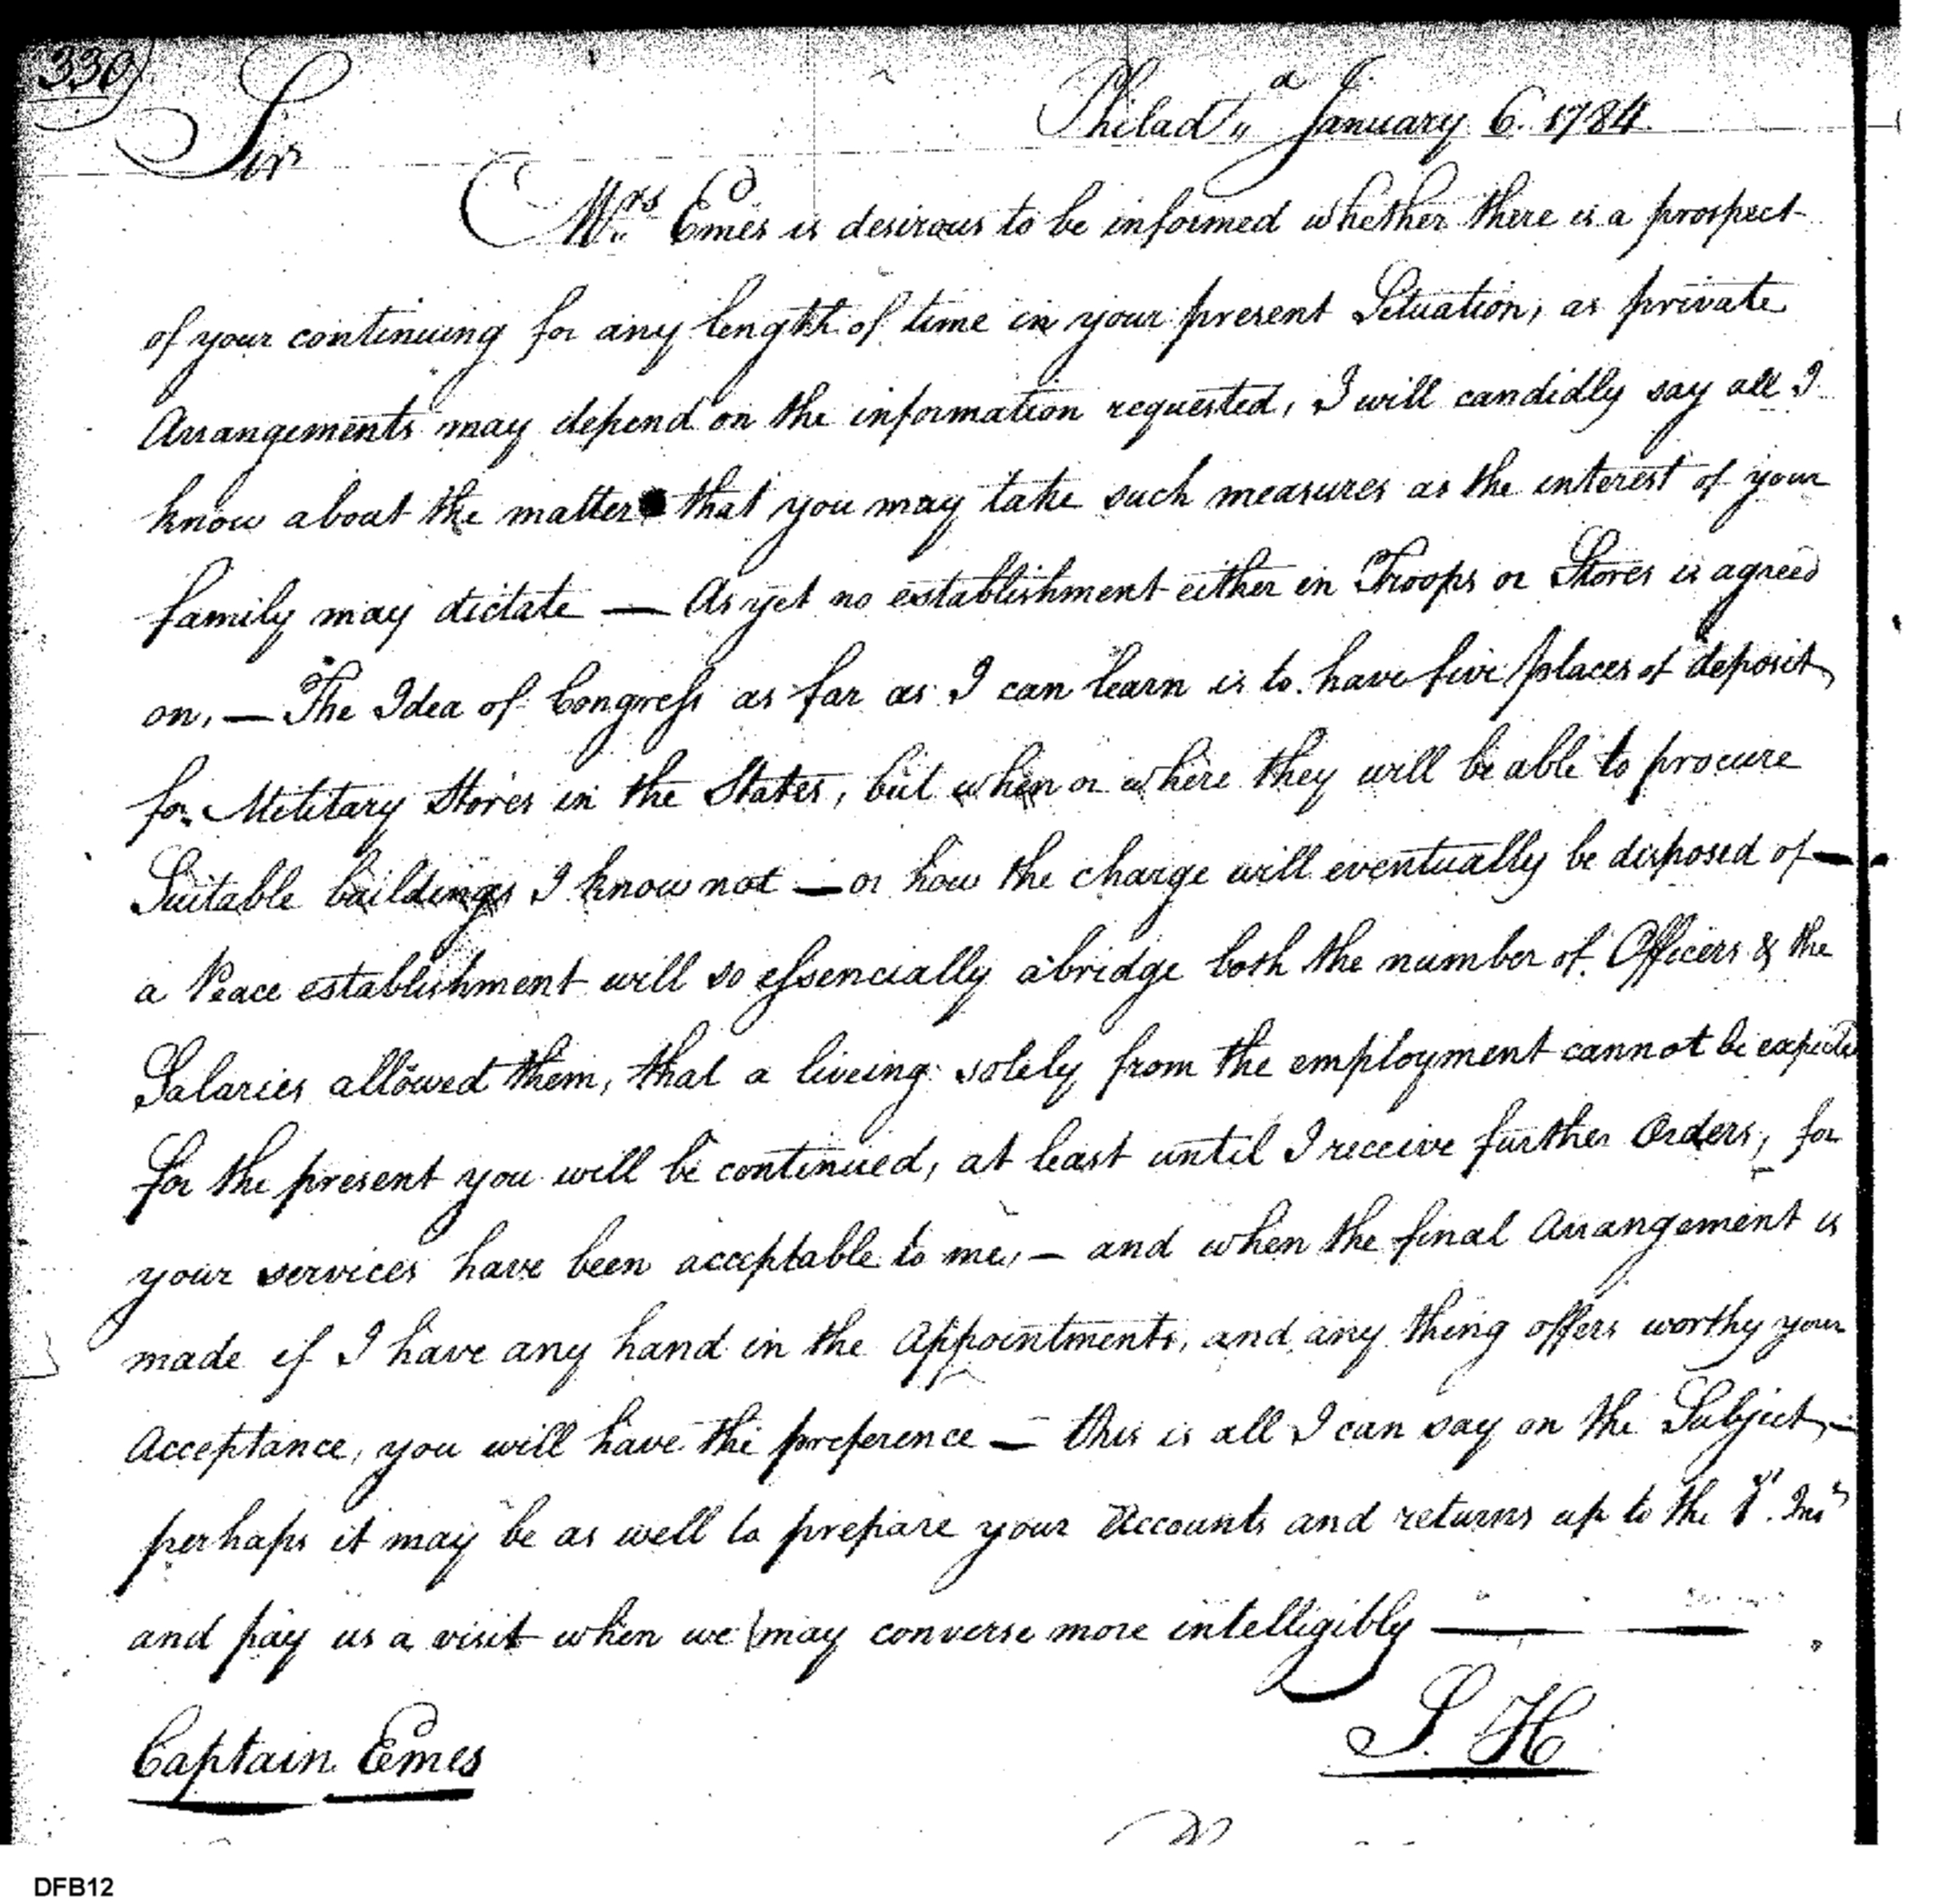 330)
Philad,,a January 6. 1784.
Sir
Mrs Emes is desirous to be informed whether there is a prospect
of your continuing for any lenght of time in your present Situation, as private
Arrangements may depend on the information requested, I will candidly say all I
know about the matter that you may take such measures as the interest of your
family may dictate — As yet no establishment either in Troops or Stores is agreed
on, — The Idea of Congress as far as I can learn is to have five places of deposit
for Military Stores in the States, but when or where they will be able to procure
Suitable buildings I know not — or how the charge will eventually be disposed of —
a Peace establishment will so essencially abridge both the number of Officers & the
Salaries allowed them, that a liveing solely from the employment cannot be expected
for the present you will be continued, at least until I receive further Orders, for
your services have been acceptable to me, — and when the final Arrangement is
made if I have any hand in the Appointments, and any thing offers worthy your
Acceptance, you will have the preference — this is all I can say on the Subject, —
perhaps it may be as well to prepare your Accounts and returns up to the 1st. Inst
and pay us a visit when we may converse more intelligibly — —
S. H
Captain Emes
DFB12